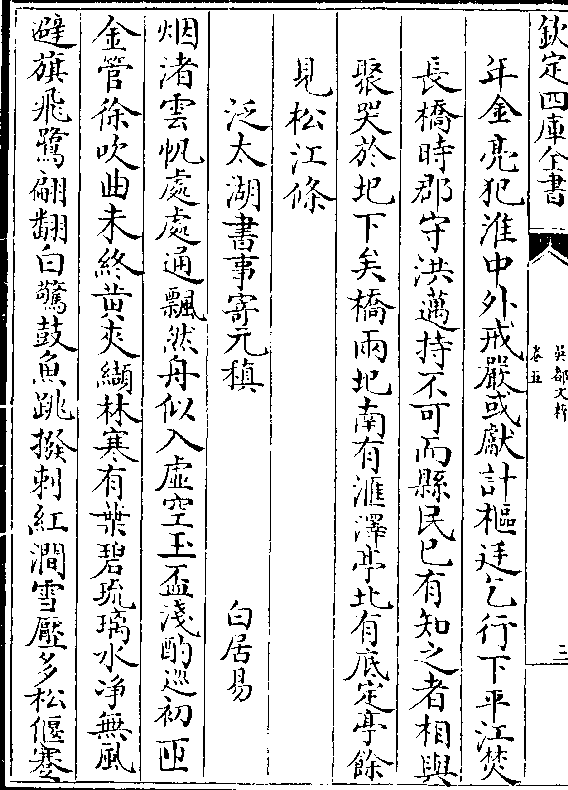 欽定四庫全書
吳都文粹
卷五
三
年金亮犯淮中外戒嚴或獻計樞廷乞行下平江焚
長橋時郡守洪邁持不可而縣民已有知之者相與
聚哭於圯下矣橋兩圯南有滙澤亭北有底定亭餘
見松江條
泛太湖書事寄元稹
白居易
烟渚雲帆處處通飄然舟似入虛空玉盃淺酌巡初匝
金管徐吹曲未終黄夾纈林寒有葉碧琉璃水净無風
避旗飛鷺翩翻白驚鼓魚跳撥刺紅澗雪壓多松偃蹇